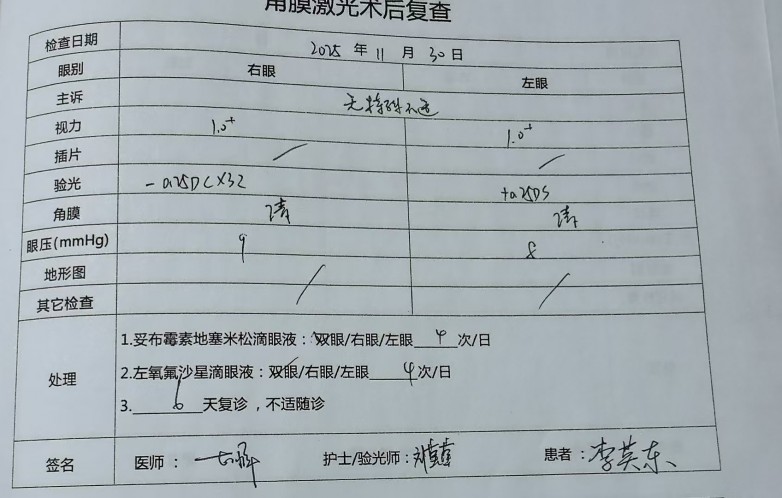 角膜激光术后复查
检查日期 2025 年 11 月 30 日
眼别 右眼 左眼
主诉 无特殊不适
视力 1.0+ 1.0+
插片 / /
验光 -0.25DC×32 +0.25DS
角膜 清 清
眼压(mmHg) 9 8
地形图 / /
其它检查
处理
1.妥布霉素地塞米松滴眼液：双眼/右眼/左眼 4 次/日
2.左氧氟沙星滴眼液：双眼/右眼/左眼 4 次/日
3. 6 天复诊，不适随诊
签名 医师： 护士/验光师： 患者：李英东